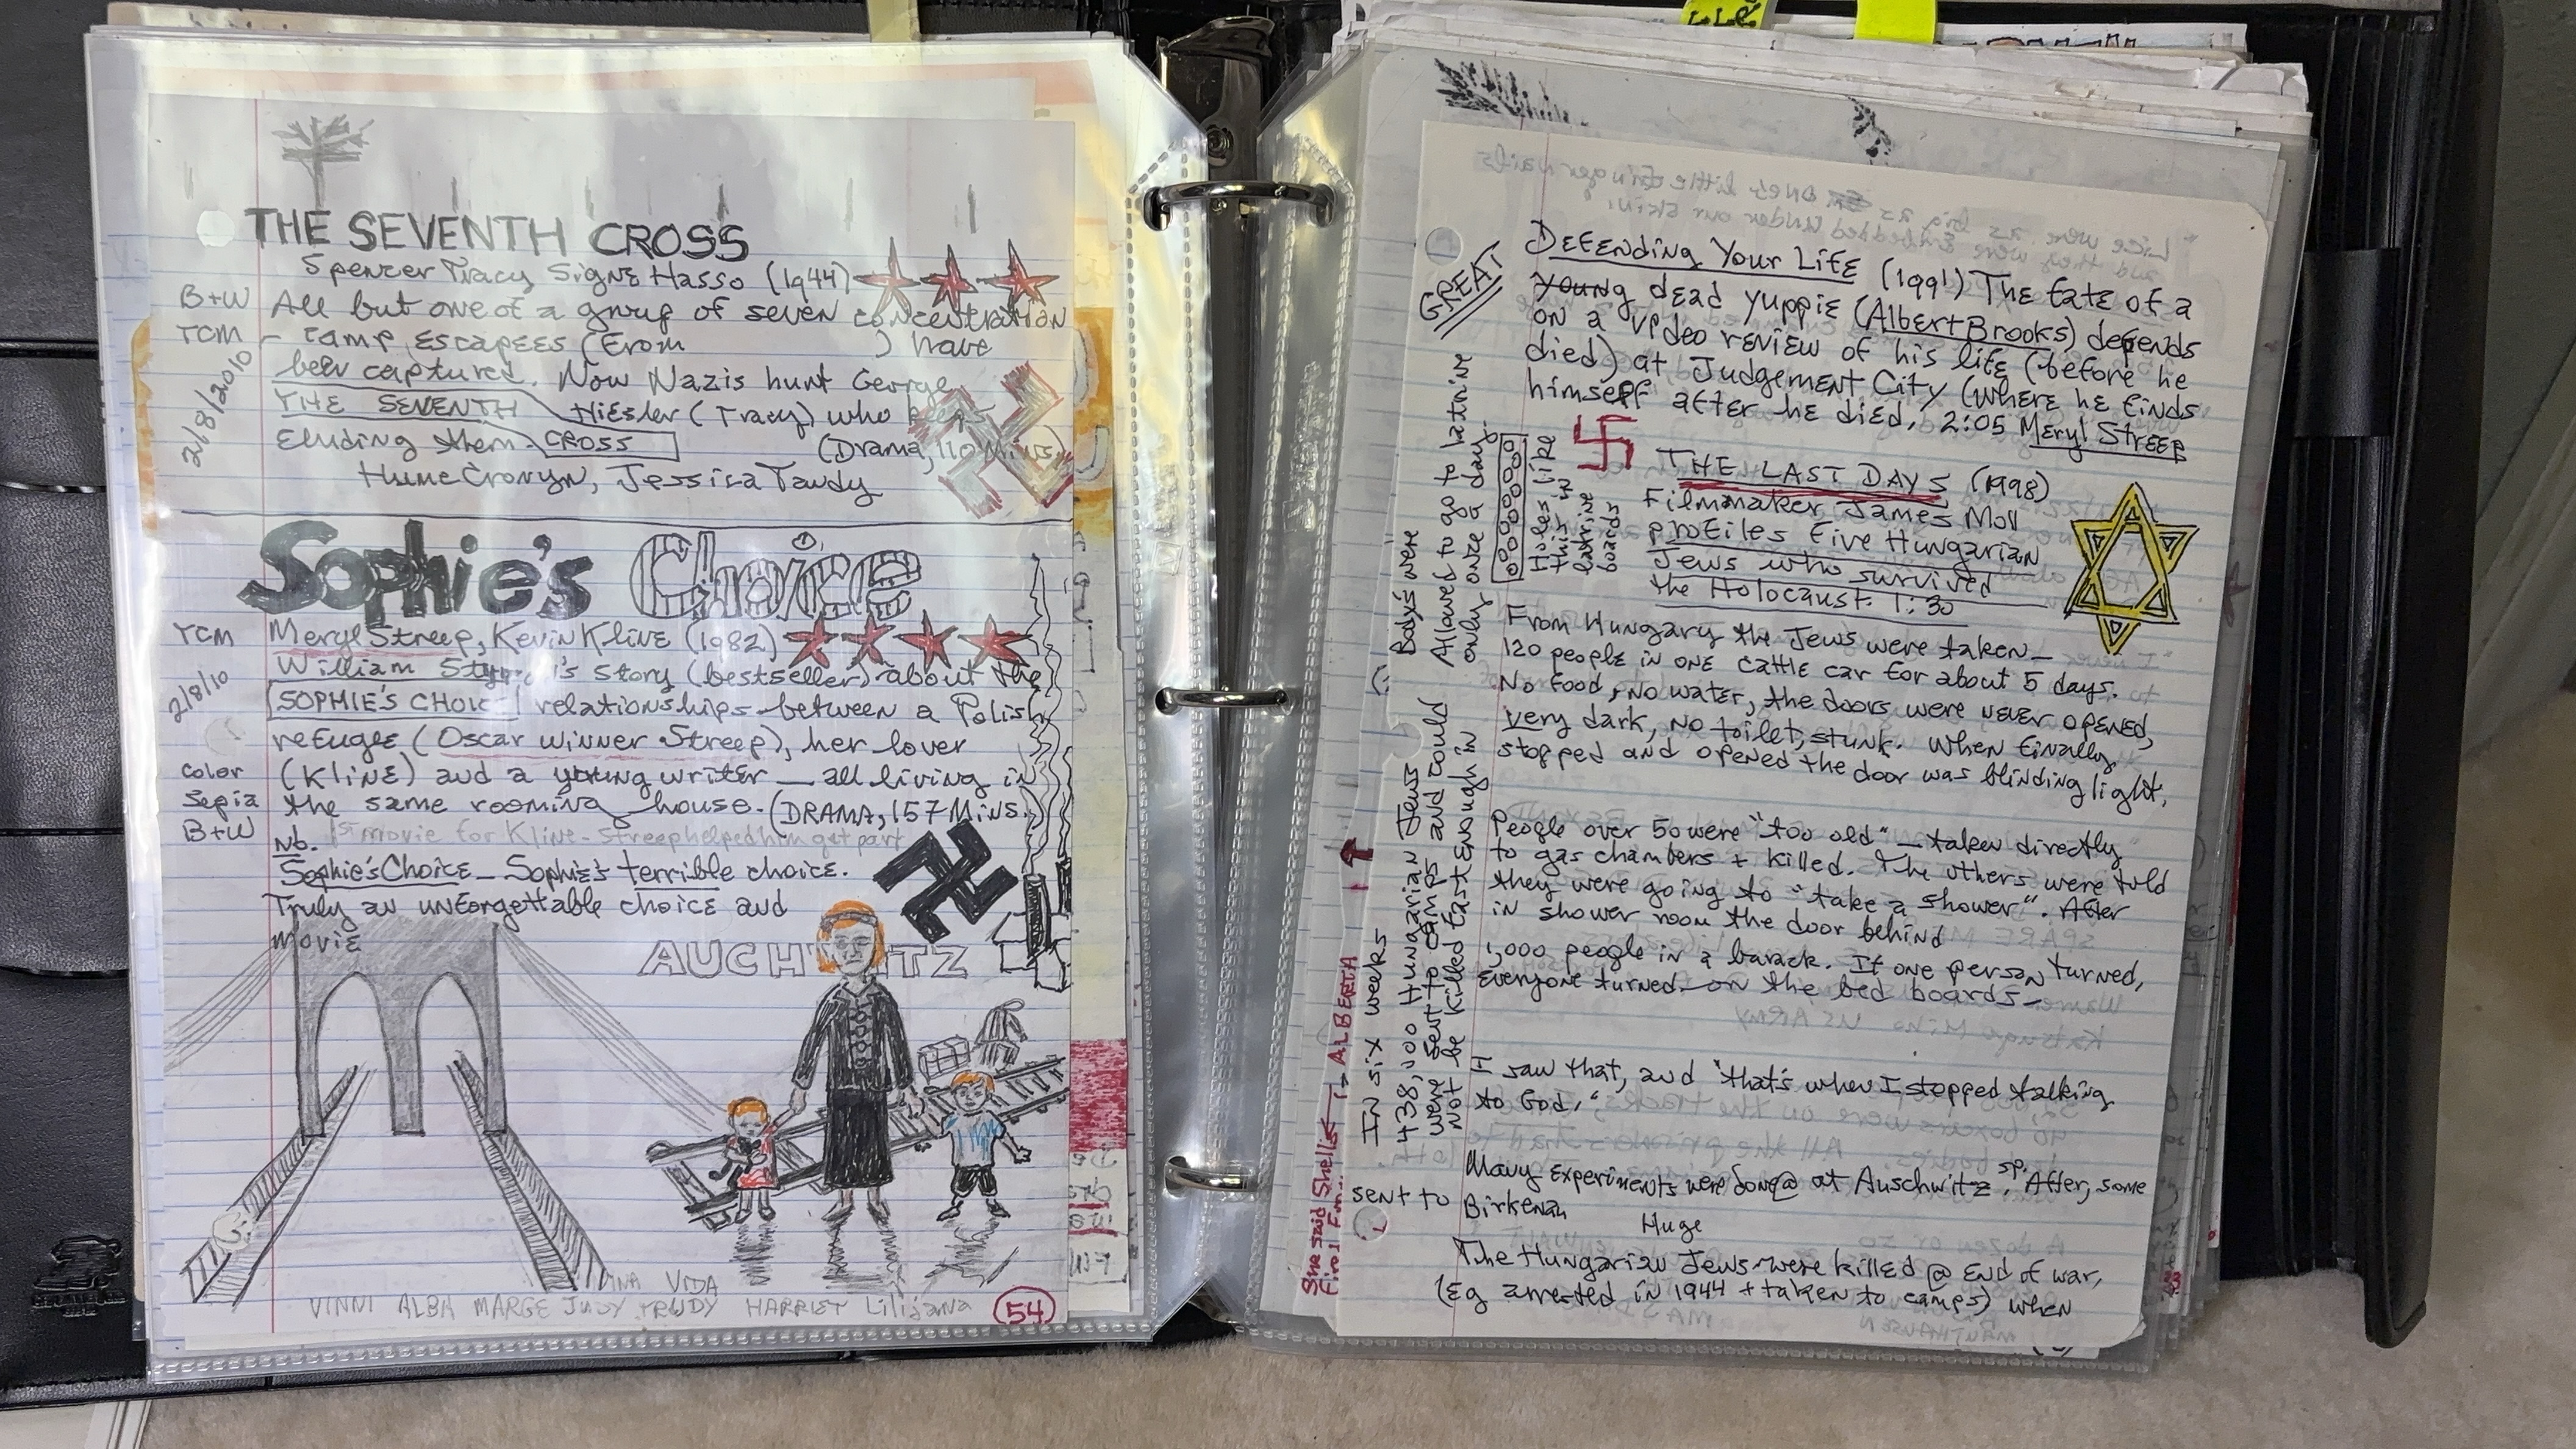 THE SEVENTH CROSS
Spencer Tracy Signe Hasso (1944)
B+W All but one of a group of seven concentration
TCM - camp escapees (From ) have
been captured. Now Nazis hunt George
THE SEVENTH Hiesler (Tracy) who keeps
Eluding them. CROSS (Drama, 110 Mins)
Hume Cronyn, Jessica Tandy
2/8/2010
Sophie's Choice
TCM Meryl Streep, Kevin Kline (1982)
William Styron's story (bestseller) about the
2/8/10 SOPHIE'S CHOICE relationships between a Polish
refugee (Oscar winner Streep), her lover
color (Kline) and a young writer — all living in
Sepia the same rooming house. (DRAMA, 157 Mins.)
B+W Nb. 1st movie for Kline - Streep helped him get part
Sophie's Choice - Sophie's terrible choice.
Truly an unforgettable choice and
movie
AUCHWITZ
VIDA
VINNI ALBA MARGE JUDY TRUDY HARRIET Lilijana
54
GREAT
Defending Your Life (1991) The fate of a
young dead yuppie (Albert Brooks) depends
on a video review of his life (before he
died) at Judgement City (where he finds
himself after he died, 2:05 Meryl Streep
THE LAST DAYS (1998)
Filmmaker James Moll
profiles five Hungarian
Jews who survived
the Holocaust. 1:30
From Hungary the Jews were taken —
120 people in one cattle car for about 5 days.
No food, no water, the doors were never opened,
very dark, no toilet, stunk. When finally
stopped and opened the door was blinding light.
People over 50 were "too old" — taken directly
to gas chambers + killed. The others were told
they were going to "take a shower". After
in shower room the door behind
1,000 people in a barack. If one person turned,
everyone turned on the bed boards —
I saw that, and "that's when I stopped talking
to God."
Many experiments were done @ at Auschwitz sp. After, some
sent to Birkenau
Huge
The Hungarian Jews were killed @ end of war,
(Eg arrested in 1944 + taken to camps) when
were
Allowed to go to latrine
only once a day.
Holes like
this in
latrine
boards
In six weeks
438,000 Hungarian Jews
were sent to camps and could
not be killed fast enough in
She said Shells
→ ALBERTA